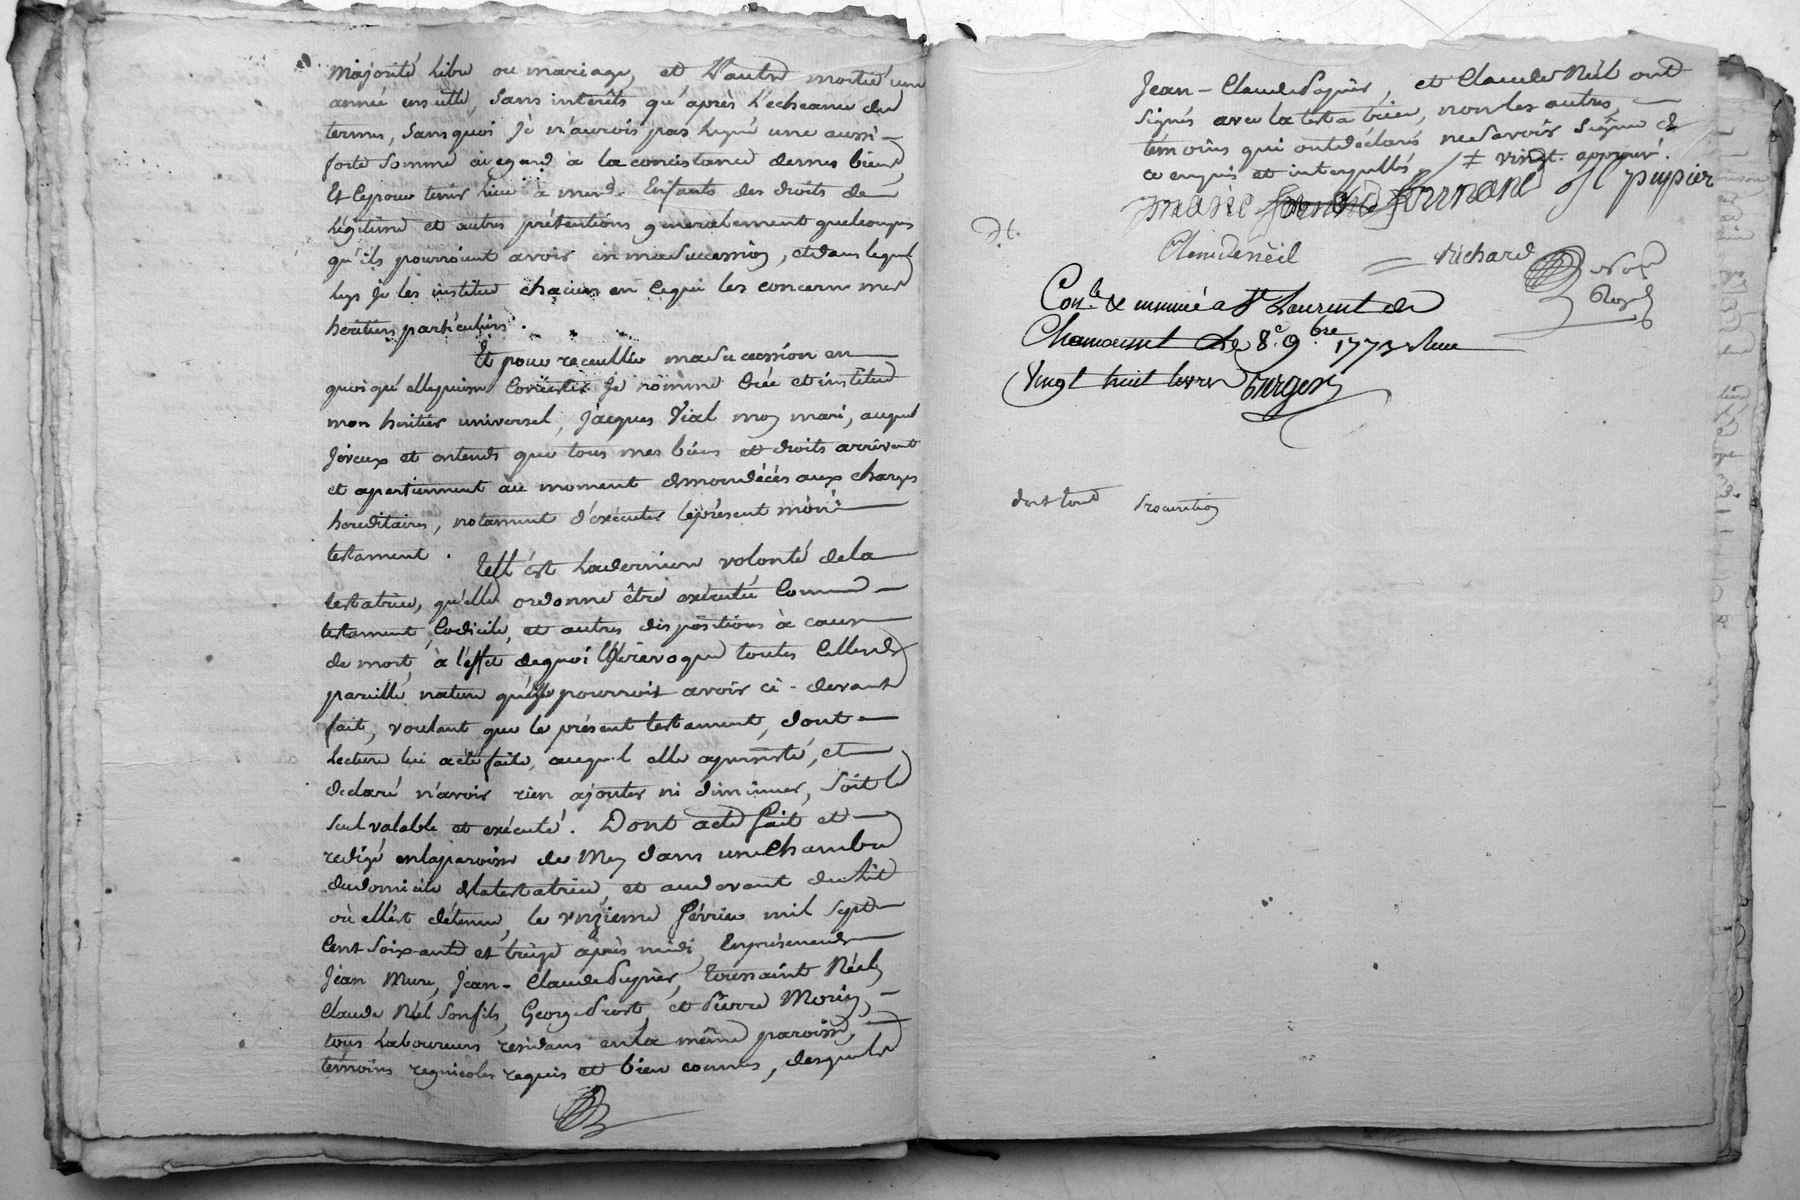 majorité libre ou mariage, et l'autre moitié une
année ensuitte, sans interêts qu'après l'echeance du
terme, sans quoi je n'aurois pas legué une aussi
forte somme eu egard à la concistance de mes biens
Et ce pour tenir lieu à mesd. Enfants des droits de
légitime et autres prétentions generalement quelconques
qu'ils pourroient avoir en ma succession, et dans lequel
legs je les institue chacun en ce qui les concerne mes
heritiers particuliers.
Et pour recueillir ma succession en
quoi qu'elle puisse consister je nomme crée et institue
mon heritier universel, Jacques Vial mon mari, auquel
je veux et entends que tous mes biens et droits arrivent
et apartiennent au moment de mon décès aux charges
hereditaires, notament d'exécuter le présent mon
testament.
Tell'est la derniere volonté de la
testatrice, qu'elle ordonne être exécutée comme
testament, codicile, et autres dispositions à cause
de mort, à l'effet de quoi elle revoque toutes celles de
pareille nature qu'elle pourroit avoir ci-devant
fait, voulant que le présent testament, dont
lecture lui a été faite, auquel elle a persisté, et
declaré n'avoir rien ajouter ni diminuer, soit le
seul valable et exécuté. Dont acte fait et
redigé en la paroisse de Mey dans une chambre
du domicile de la testatrice et au devant du lit
où ell'est détenue, le vnzieme février mil sept
cent soixante et treize après midi, En présence de
Jean Mure, Jean-Claude Pupier, Toussaint Néel,
Claude Néel son fils, George Priost, et Pierre Morin,
tous laboureurs residans en la même paroisse,
témoins regnicoles requis et bien connus, desquels
Jean-Claude Pupier, et Claude Néel ont
signés avec la testatrice, non les autres
témoins qui ont déclarés ne savoir signer de
ce enquis et interpellés ≠ vingt. approuvé.
marie fournand j C pupier
Claude neil Richard No.re
Royal
Con.lé & insinué a St Laurent de
Chamousset le 8.e 9.bre 1773 Reçu
vingt huit livres